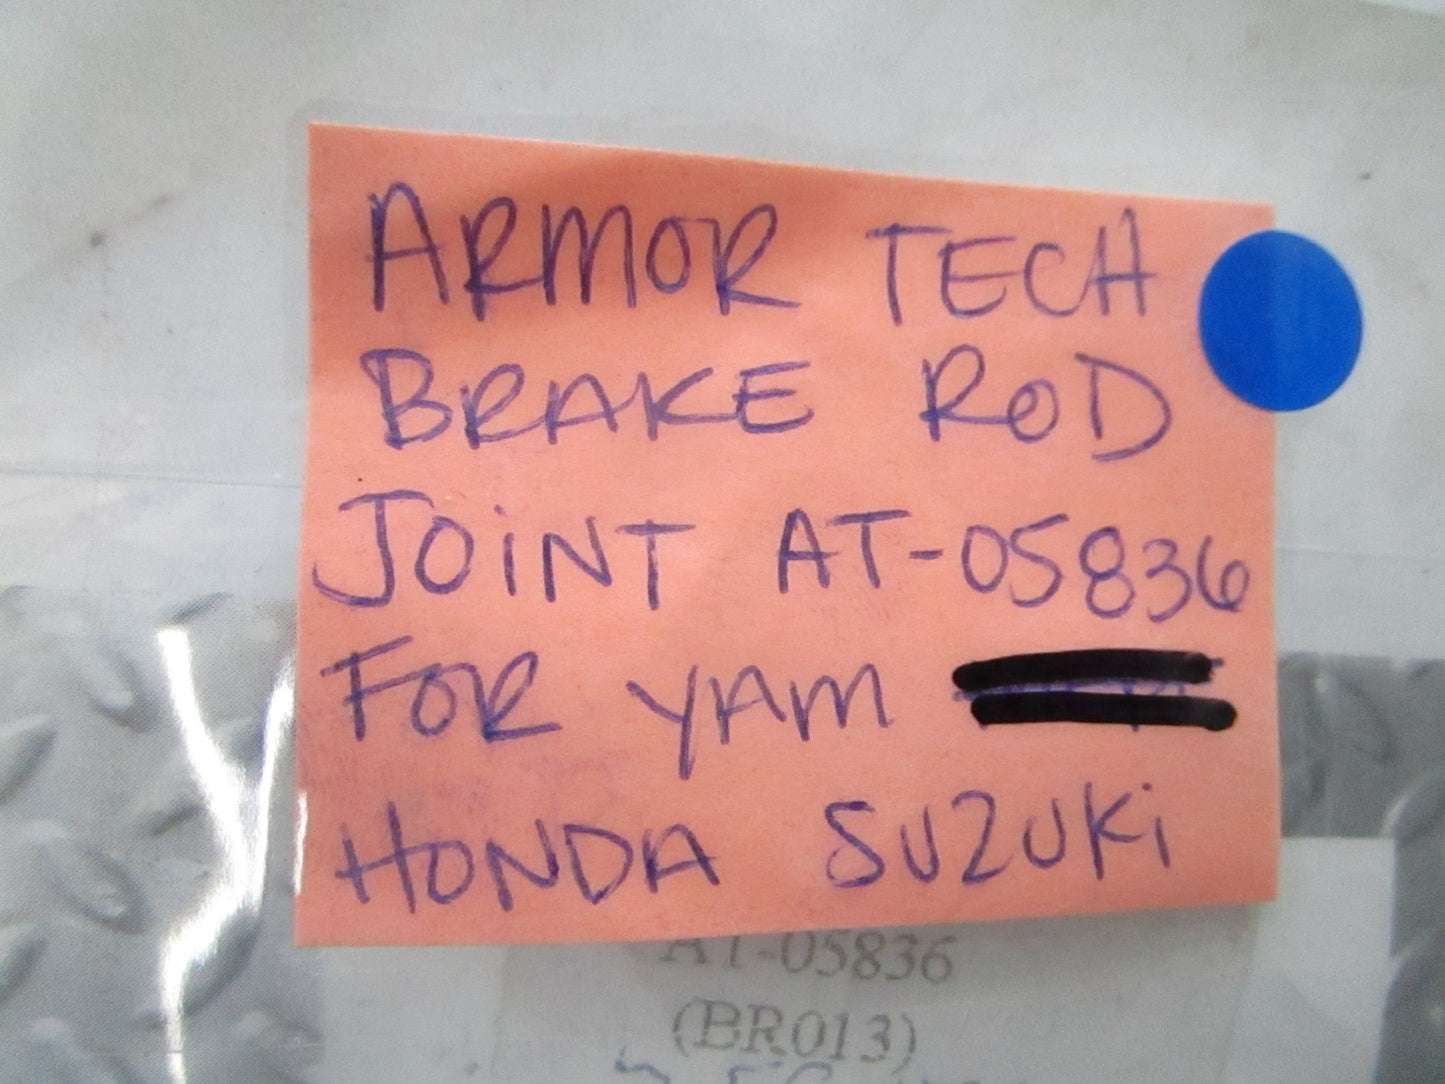 ARMOR TECH
BRAKE ROD
JOiNT AT-05836
FOR YAM
HONDA SUZUKi
AT-05836
(BR013)